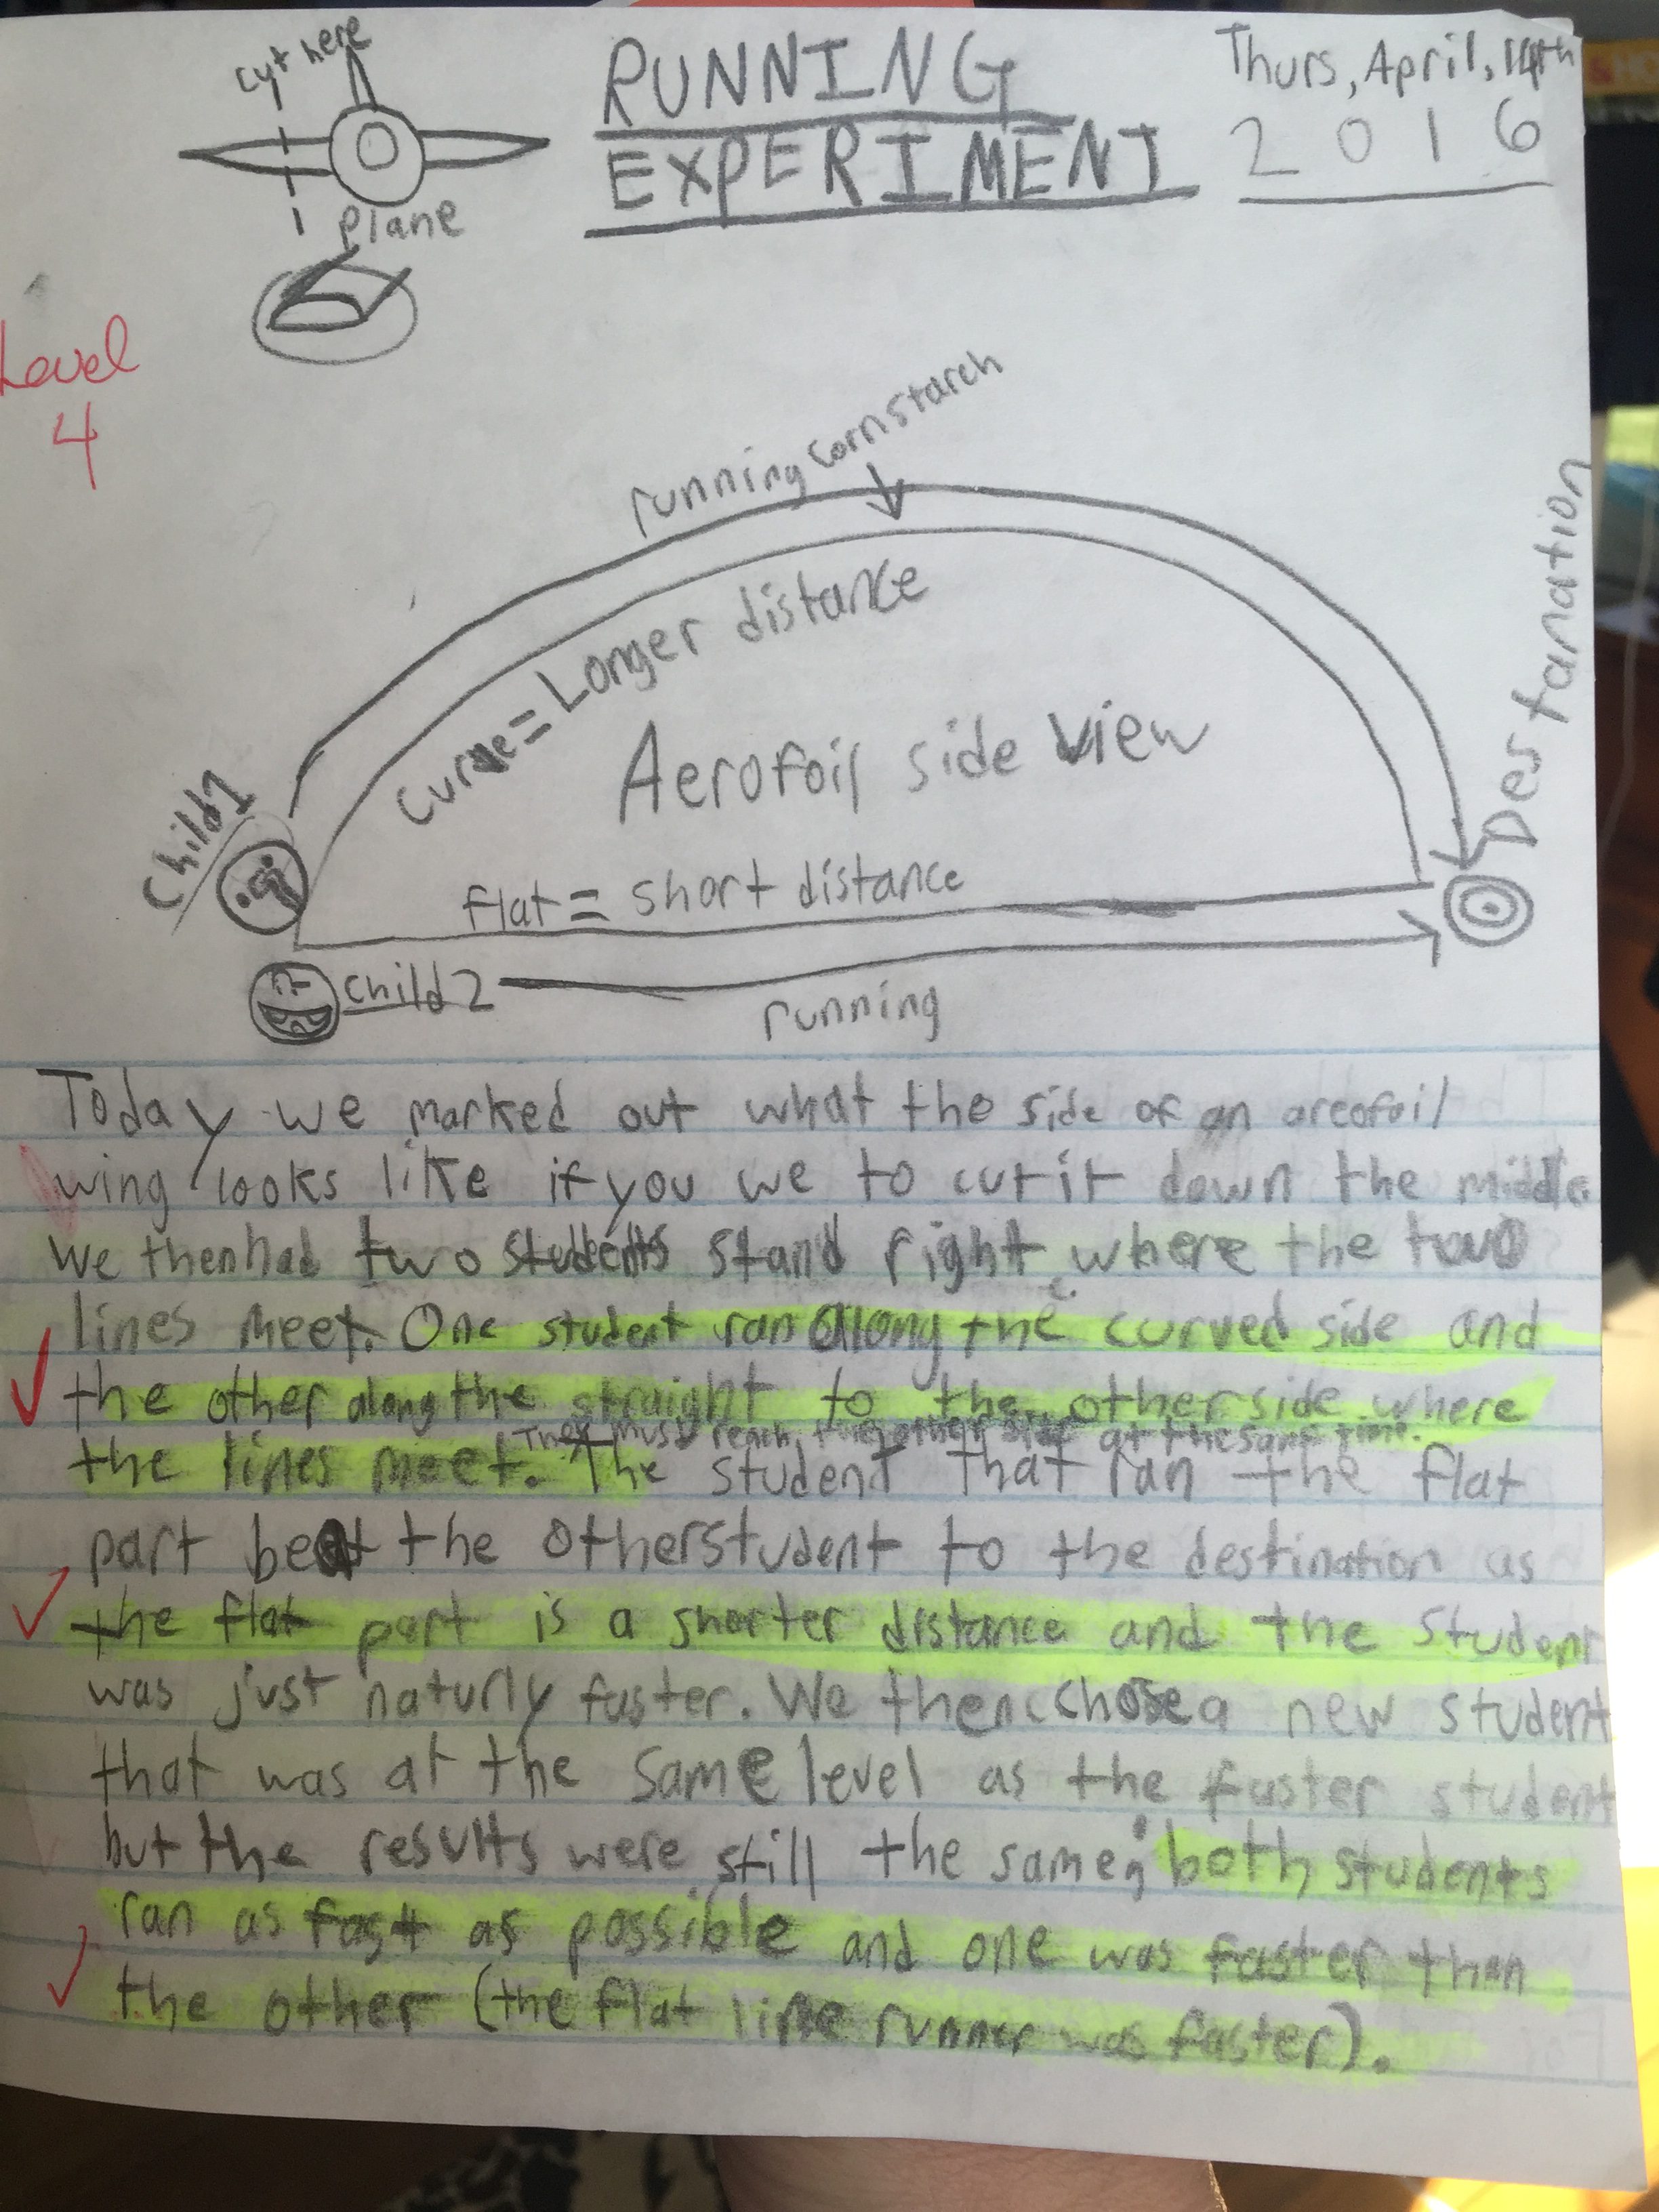 cut here
RUNNING
EXPERIMENT
Thurs, April, 14th
2016
plane
Level
4
running cornstarch
Curve = Longer distance
Aerofoil side view
Child 1
Destanation
flat = short distance
child 2
running
Today we marked out what the side of an areofoil
wing looks like if you we to cut it down the middle.
We then had two students stand right where the two
lines meet. One student ran along the curved side and
the other along the straight to the other side where
They must reach the other side at the same time.
the lines meet. The student that ran the flat
part beat the other student to the destination as
the flat part is a shorter distance and the student
was just naturly faster. We then chose a new student
that was at the same level as the faster student
but the results were still the same; both students
ran as fast as possible and one was faster then
the other (the flat line runner was faster).